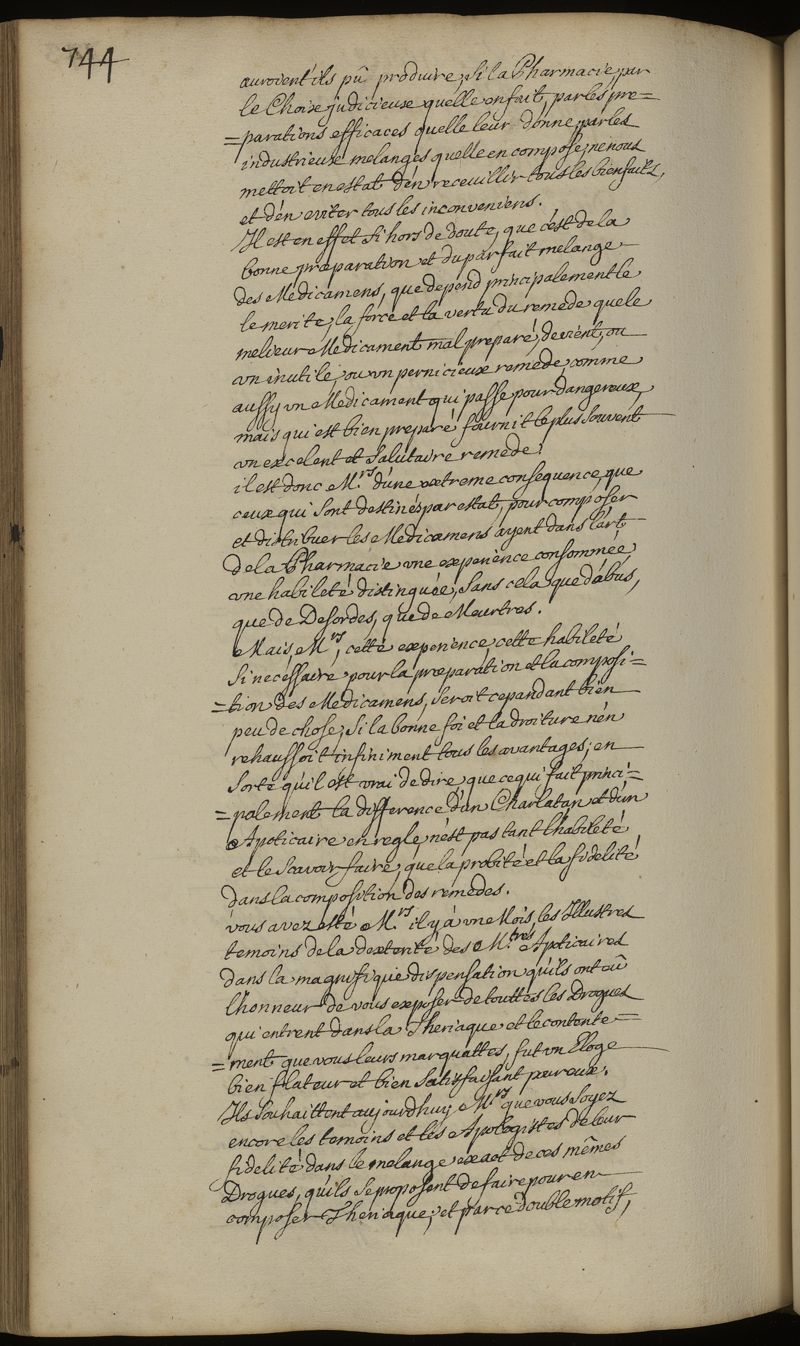 744
auroient'ils pû produire, si la Pharmacie, par
le Choix judicieux quelle en fait, par les pre=
=parations efficaces quelle leur donne, par les
industrieux melanges quelle en compose, ne nous
mettoit en estat d'en receuillir tous les bienfaits,
et d'en eviter tous les inconveniens.
Il est en effet si hors de doute, que c'est de la
bonne præparation et du parfait melange
des Medicamens, que depend principalement le
le merite, la force et la vertu du remede que le
melieur Medicament mal preparé, devient, ou
un inutile, ou un pernicieux remede, comme
aussy un Medicament qui passe pour dangereux,
mais qui est bien preparé fournit le plus souvent
un excelent et salutaire remede.
il est donc M.rs d'une extreme consequence, que
ceux qui sont destinés par estat, pour composer
et distribuer les Medicamens ayent dans l'art
de la Pharmacie une experience consommée,
une habileté distinquée, sans cela que d'abus,
que de Desordes, que de Meurtres.
Mais, M.rs, cette experience, cette habileté
si necéssaire pour la præparation et la composi=
=tion des Medicamens, seroit cepandant bien
peu de chose, si la bonne foi et la droiture n'en
rehaussoit infiniment tous les avantages, en
sorte qu'il est vrai de dire, que ce qui fait princi=
=palement la difference d'un Charlatan et d'un
Apoticaire en regle, n'est pas tant l'habileté
et le scavoir faire, que la probité et la fidelité
dans la composition des remedes.
vous avez esté M.rs il y à une Mois, les Illustres
temoins de la dexterité des M.tres Apoticaires
dans la magnifique dispensation qu'ils ont eû
l'honneur de vous exposer de touttes les Drogues
qui entrent dans la Theriaque et le contente=
=ment que vous leurs marquattes, fut un Eloge
bien flateur et bien satisfaisant pour eux.
Ils souhaittent aujourdhuy M.rs que vous soyez
encore les temoins et les Apologistes de leur
fidelité dans le melange exact de ces mêmes
Drogues, qu'ils se proposent de faire pour en
composer Theriaque, et par ce double motif,